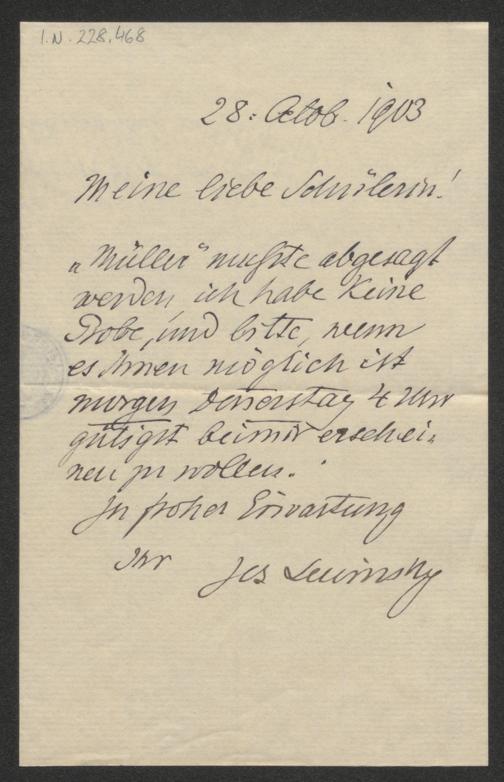 I.N. 228.468
28. Octob. 1903
Meine liebe Schülerin!
„Müller“ mußte abgesagt
werden, ich habe keine
Probe, und bitte, wenn
es Ihnen möglich ist
morgen Donnerstag 4 Uhr
gütigst bei mir erschei-
nen zu wollen.
In froher Erwartung
Ihr Jos Lewinsky